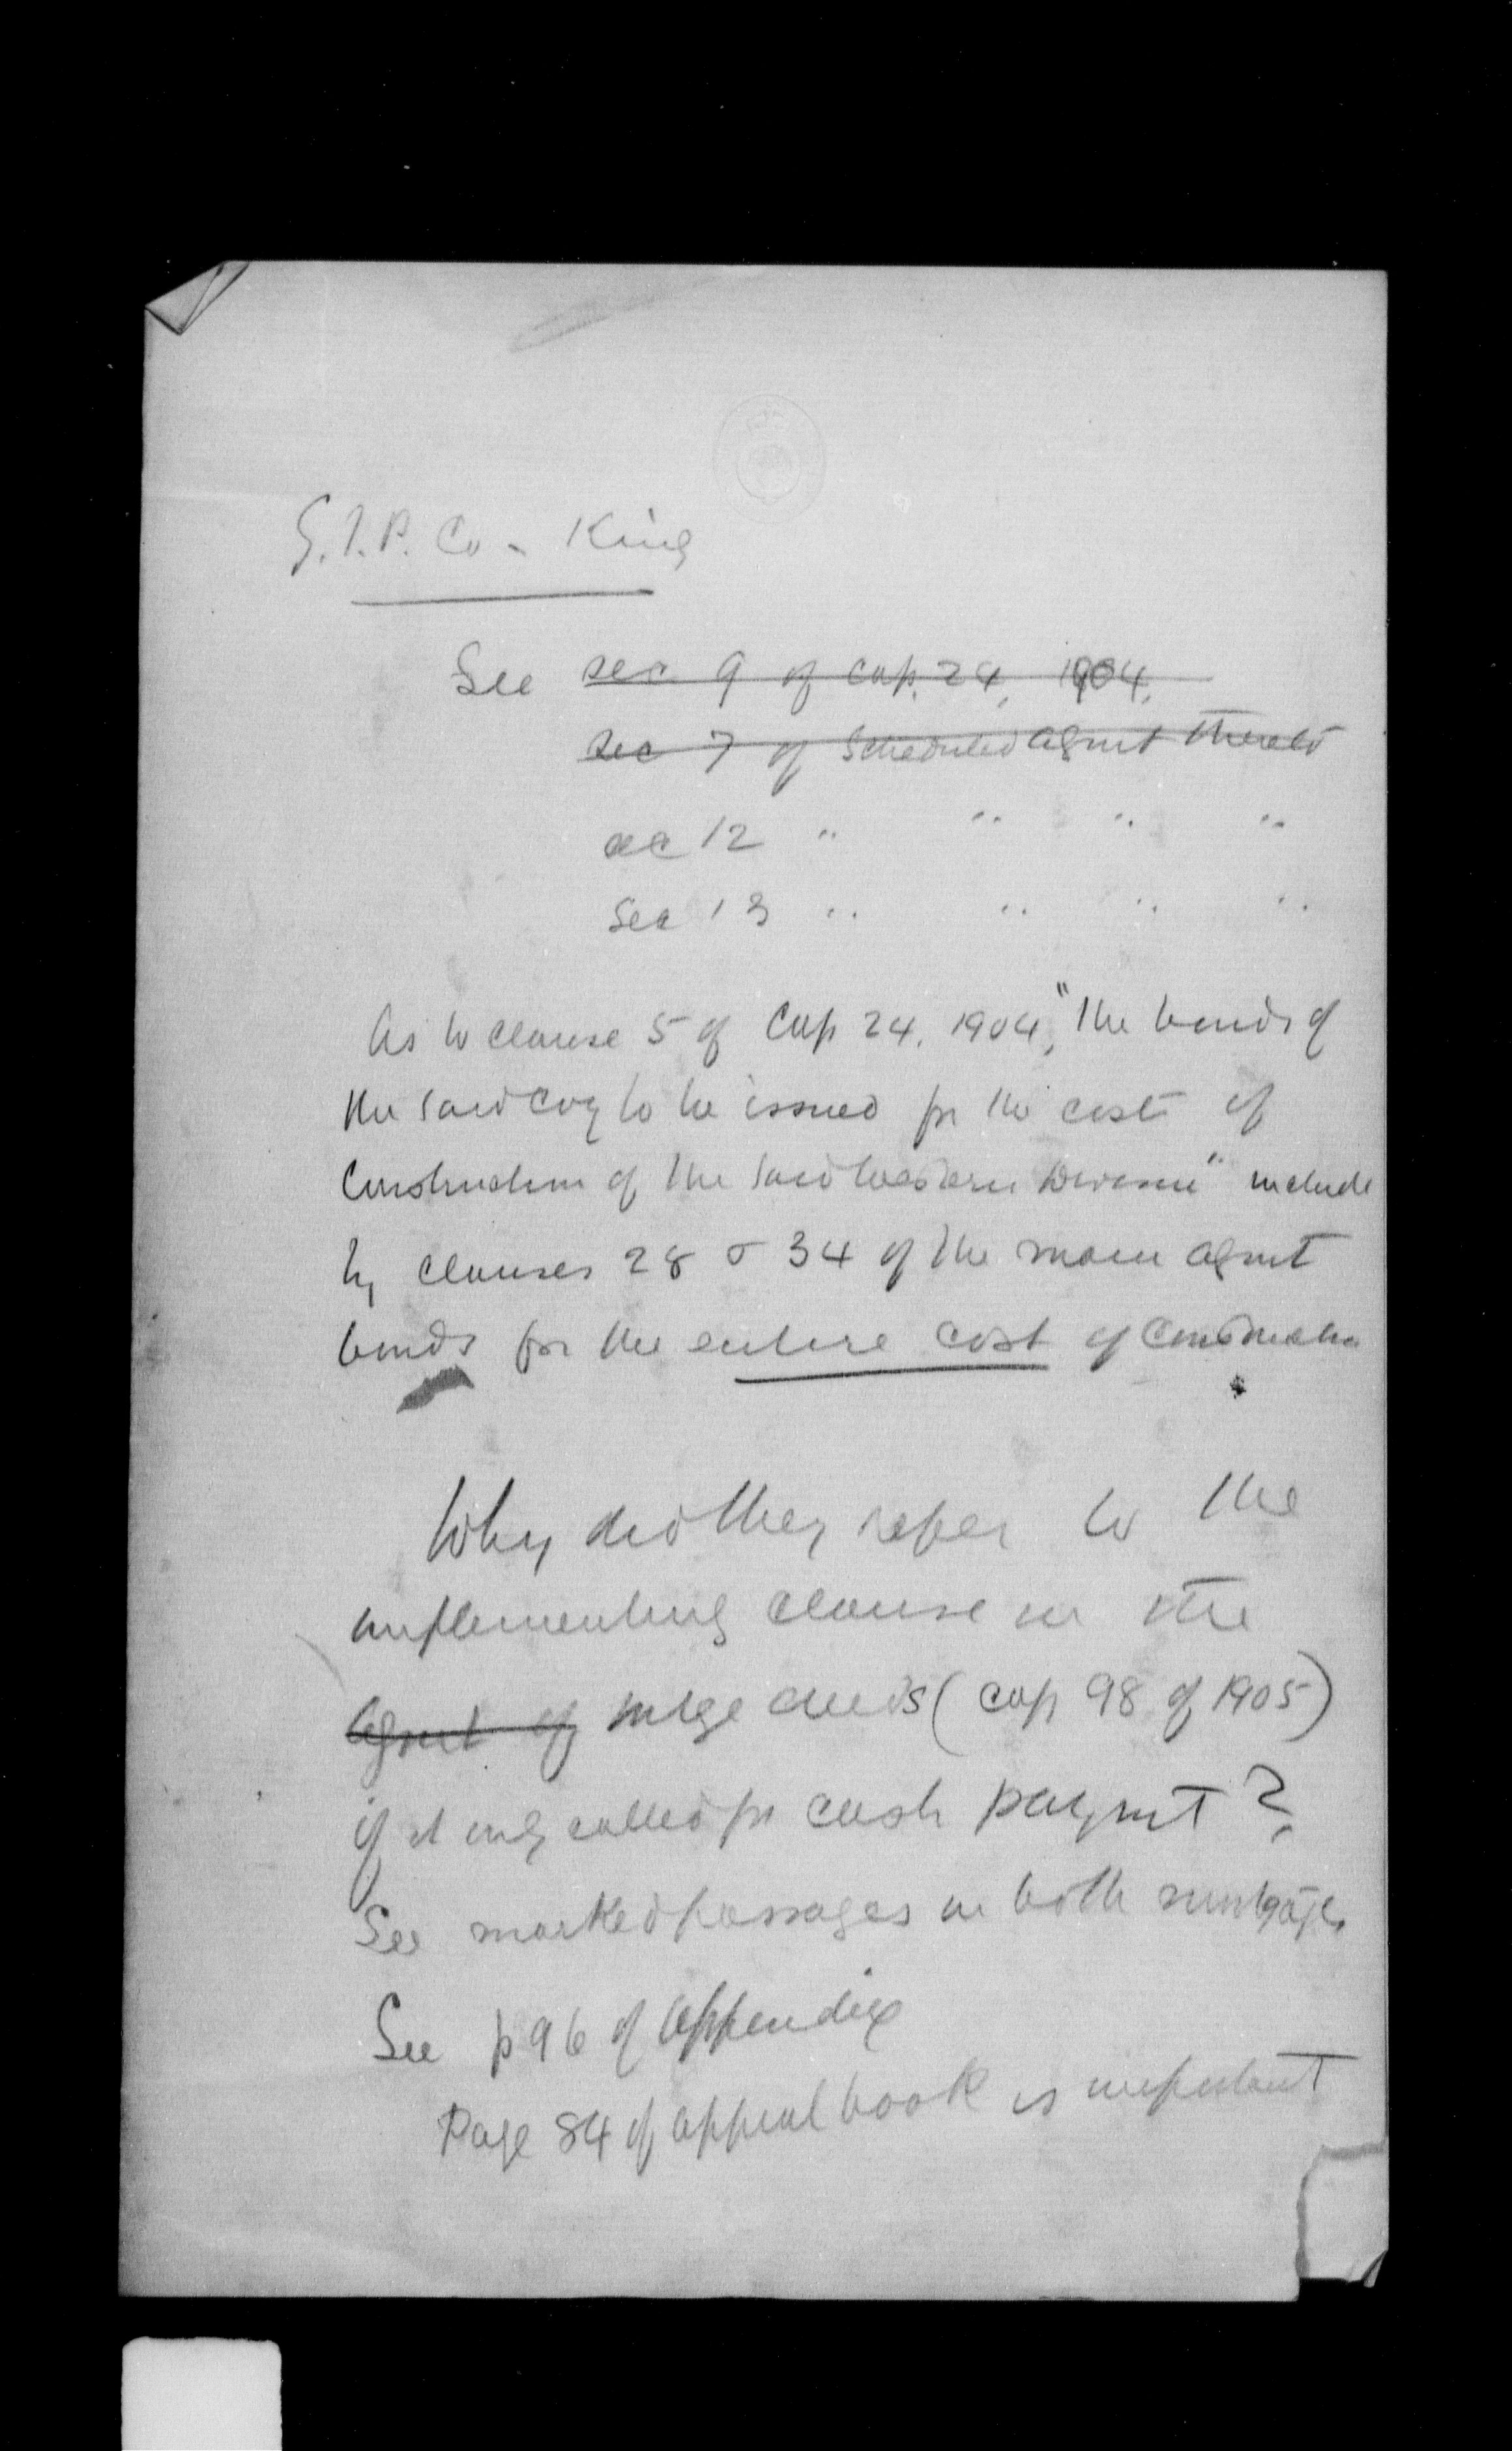 G.T.P. Co - King
See sec 9 of cap. 24, 1904,
sec 7 of Scheduled agmt thereto
sec 12 " " " "
Sec 13 " " " "
As to clause 5 of Cap 24, 1904, "the bonds of
the said Coy to be issued for the cost of
Construction of the said Western Division" include
by clauses 28 & 34 of the main agmt
bonds for the entire cost of Construction
Why did they refer to the
implementing clause in the
agmt of mtge deeds (cap 98 of 1905)
if it only called for cash paymt?
See marked passages in both mortgages
See p 96 of appendix
Page 84 of appeal book is important